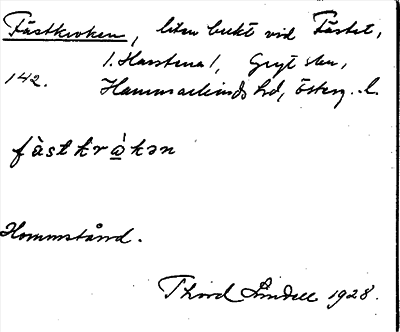 Fästkroken, liten bukt vid Fästet,
(Harstena), Gryt sn,
142. Hammarkinds hd, Österg. l.
fästkrò̲kən
Hammstånd.
Thord Lindell 1928.